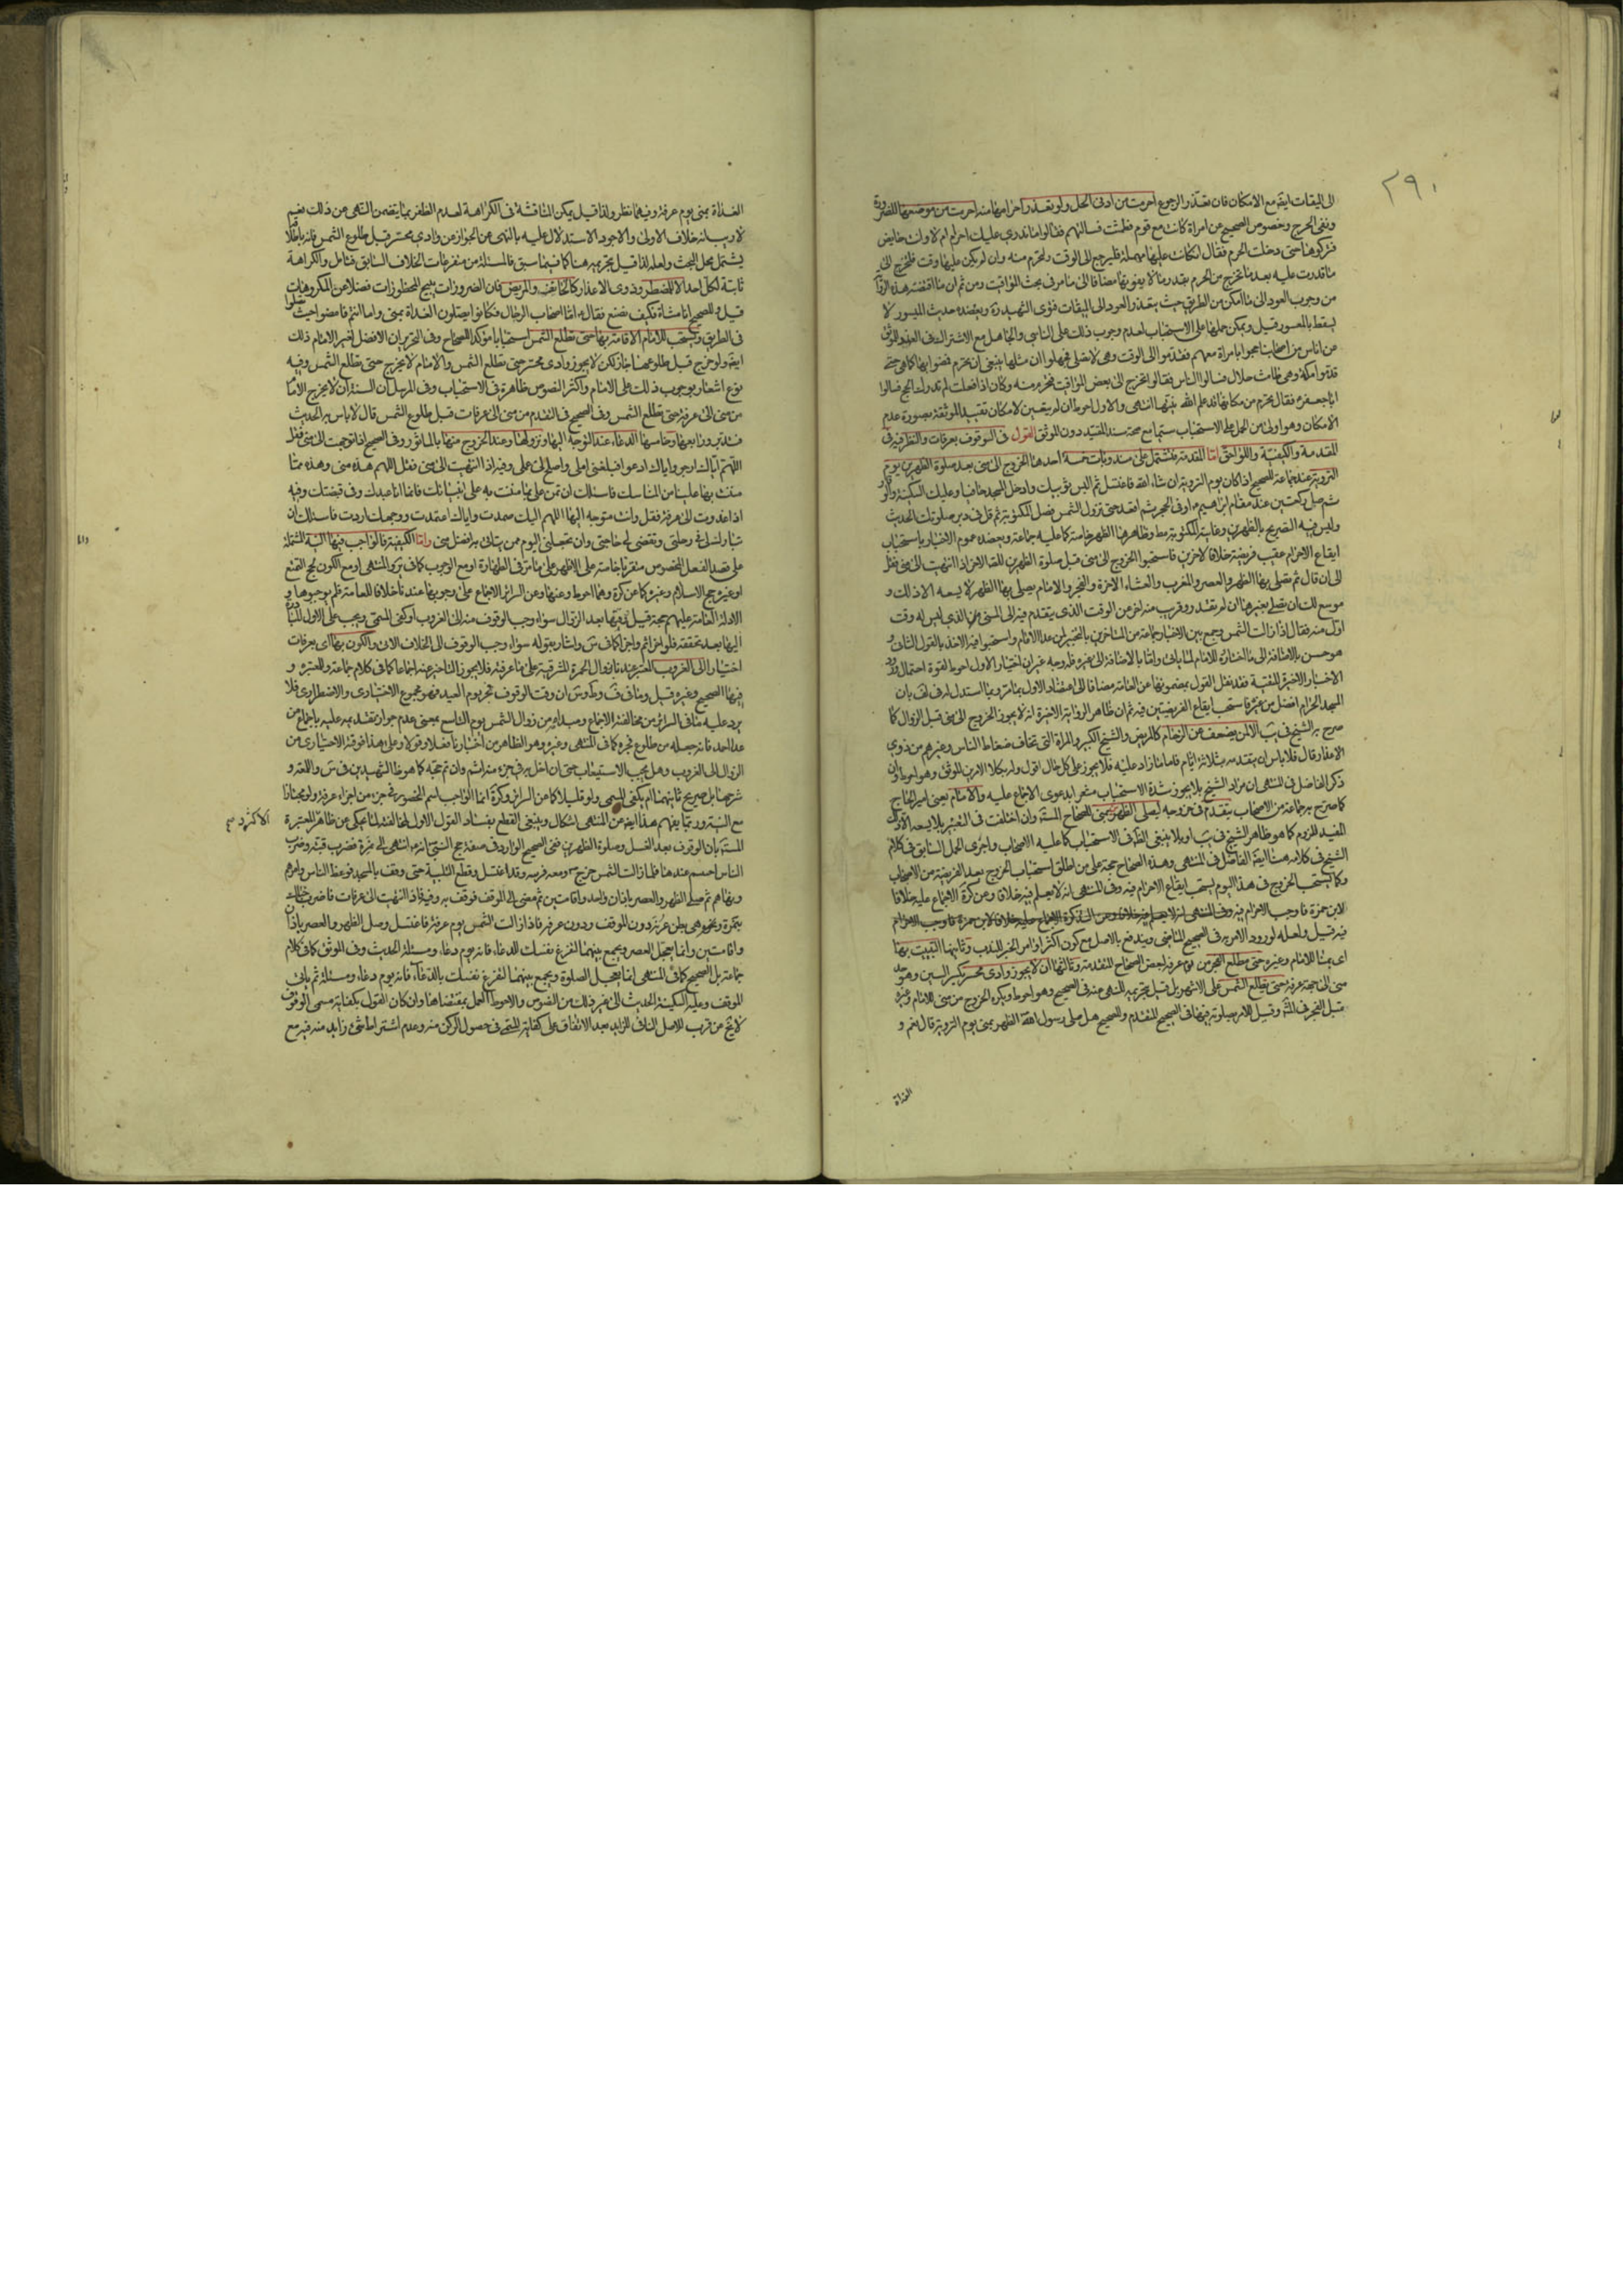 ٢٩٠
الى الميقات ايضا مع الامكان فان تعذر الرجوع احرمت من ادنى الحل ولو تعذر احرامها منه احرمت من موضعها للضرورة
ونفى الحرج وخصوص الصحيح عن امراة كانت مع قوم فطمثت فسالتهم فقالوا ما ندري عليك احرام ام لا وانت حايض
فتركوها حتى دخلت الحرم فقال ان كان عليها مهلة فليرجع الى الوقت ولتحرم منه وان لم يكن عليها وقت فلتخرج الى
ما قدرت عليه بعد ما تخرج من الحرم بقدر ما لا يفوتها مضافا الى ما مر في بحث المواقيت ومن ثم ان ما اقتضته هذه الرواية
من وجوب العود الى ما امكن من الطريق حيث يتعذر العود الى الميقات فتوى الشهيد ره ويعضده حديث الميسور لا
يسقط بالمعسور قيل ويمكن حملها على الاستحباب لعدم وجوب ذلك على الناسي والجاهل مع الاشتراك في العذر والموثق
عن اناس من اصحابنا حجوا بامراة معهم فقدموا الى الوقت وهي لا تصلي فجهلوا ان مثلها ينبغي ان يحرم فمضوا بها كما هي حتى
قدموا مكة وهي طامث حلال فسالوا الناس فقالوا تخرج الى بعض المواقيت فتحرم منه وكان اذا فعلت لم تدرك الحج فسالوا
ابا جعفر ع فقال يحرم من مكانها قد علم الله نيتها انتهى والاول احوط ان لم يتعين لامكان تقييد الموثقة بصورة عدم
الامكان وهو اولى من الحمل على الاستحباب سيما مع صحة سند المقيد دون الموثق القول في الوقوف بعرفات والنظر فيه في
المقدمة والكيفية واللواحق اما المقدمة فتشتمل على مندوبات خمسة احدها الخروج الى منى بعد صلوة الظهرين يوم
التروية عند جماعة للصحيح اذا كان يوم التروية ان شاء الله فاغتسل ثم البس ثوبيك وادخل المسجد حافيا وعليك السكينة والوقار
ثم صل ركعتين عند مقام ابراهيم ع او في الحجر ثم اقعد حتى تزول الشمس فصل المكتوبة ثم قل في دبر صلوتك الحديث
وليس فيه التصريح بالظهرين وغايته المكتوبة مط وظاهرها الظهر خاصة كما عليه جماعة ويعضده عموم الاخبار باستحباب
ايقاع الاحرام عقيب فريضة خلافا لاخرين فاستحبوا الخروج الى منى قبل صلوة الظهرين للصحيح اذا انتهيت الى منى فقل
الى ان قال ثم تصلي بها الظهر والعصر والمغرب والعشاء الاخرة والفجر والامام يصلي بها الظهر لا يسعه الا ذلك و
موسع لك ان تصلي بغيرها ان لم تقدر وقرب منه اخر عن الوقت الذي يتقدم فيه الى المنى الذي ليس له وقت
اول منه فقال اذا زالت الشمس وجمع بين الاخبار جماعة من المتاخرين بالتخيير لمن عدا الامام واستحبوا فيه الاخذ بالقول الثاني و
هو حسن بالاضافة الى ما اختاره للامام لما ياتي واما بالاضافة الى غيره فله وجه غير ان اختيار الاول احوط لقوة احتمال ورود
الاخبار الاخيرة للتقية فقد نقل القول بمضمونها عن العامة مضافا الى اعتضاد الاول بما مر وبما استدل له في لف بان
المسجد الحرام افضل من غيره فاستحب ايقاع الفريضتين فيه ثم ان ظاهر الرواية الاخيرة انه لا يجوز الخروج الى منى قبل الزوال كما
صرح به الشيخ في يب الا لمن يضعف عن الزحام كالمريض والشيخ الكبير والمراة التي تخاف ضغاط الناس وغيرهم من ذوي
الاعذار وقال فلا باس ان يتقدمه بثلاثة ايام فاما ما زاد عليه فلا يجوز على كل حال اقول ولم يدل الامرين الموثق وهو احوط وان
ذكر الفاضل في المنتهى ان مراد الشيخ بلا يجوز شدة الاستحباب مشعرا بدعوى الاجماع عليه والامام يعني امير الحاج
كما صرح به جماعة من الاصحاب يتقدم في خروجه ليصلي الظهر بمنى للصحاح المستفيضة وان اختلفت في التعبير بلا يسعه الا ذلك
المفيد للزوم كما هو ظاهر الشيخ في يب او بلا ينبغي الظاهر في الاستحباب كما عليه الاصحاب واجرى الحمل السابق في كلام
الشيخ في كلامه هنا ايضا الفاضل في المنتهى وهذه الصحاح حجة على من اطلق استحباب الخروج بعد الفريضة من الاصحاب
وكما يستحب الخروج في هذا اليوم يستحب ايقاع الاحرام فيه وفي المنتهى انه لا يعلم فيه خلافا وعن كرة الاجماع عليه خلافا
لابن حمزة فاوجب الاحرام فيه
فيه قيل ولعله لورود الامر به في الصحيح الماضي ويندفع بالاصل مع كون اكثر اوامر الخبر للندب وثانيها المبيت بها
اي بمنا للامام وغيره حتى يطلع الفجر من يوم عرفة لبعض الصحاح المتقدمة وثالثها ان لا يجوز وادي محسر بكسر السين وهو حد
منى الى جهة عرفة حتى يطلع الشمس على الاشهر بل قيل بتحريمه للنهي عنه في الصحيح وهو احوط ويكره الخروج من منى للامام وغيره
قبل الفجر في المشهور وقيل للامر بصلوته بها في الصحيح المتقدم والصحيح هل صلى رسول الله الظهر بمنى يوم التروية قال نعم و
الغداة
الغداة بمنى يوم عرفة وفيهما نظر ولذا قيل يمكن المناقشة في الكراهة لعدم الظفر بما يتضمن النهي عن ذلك نعم
لا ريب انه خلاف الاولى والاجود الاستدلال عليه بالنهي عن الجواز من وادي محسر قبل طلوع الشمس فانه باطلاقه
يشتمل محل البحث ولعله لذا قيل بتحريمه هنا كما فيما سبق فالمسئلة من متفرعات الخلاف السابق فتامل والكراهة
ثابتة لكل احد الا للمضطر وذوي الاعذار كالخائف والمريض فان الضرورات تبيح المحظورات فضلا عن المكروهات
قيل وللصحيح انا مشاة فكيف نصنع فقال ع اما اصحاب الرحال فكانوا يصلون الغداة بمنى واما انتم فامضوا حيث تصلوا
في الطريق ويستحب للامام الاقامة بها حتى تطلع الشمس استحبابا مؤكدا للصحاح وفي التحرير ان الافضل لغير الامام ذلك
ايضا ولو خرج قبل طلوعها جاز لكن لا يجوز وادي محسر حتى تطلع الشمس والامام لا يخرج حتى تطلع الشمس وفيه
نوع اشعار بوجوب ذلك على الامام واكثر النصوص ظاهرة في الاستحباب وفي المرسل ان السنة ان لا يخرج الامام
من منى الى عرفة حتى تطلع الشمس وفي الصحيح في التقدم من منى الى عرفات قبل طلوع الشمس قال لا باس به الحديث
فتدبر ورابعها وخامسها الدعاء عند التوجه اليها ونزولها وعند الخروج منها بالماثور وفي الصحيح اذا توجهت الى منى فقل
اللهم اياك ارجو واياك ادعو فبلغني املي واصلح لي عملي وفيه اذا انتهيت الى منى فقل اللهم هذه منى وهذه مما
مننت بها علينا من المناسك فاسئلك ان تمن علي بما مننت به على انبيائك فانما انا عبدك وفي قبضتك وفيه
اذا غدوت الى عرفة فقل وانت متوجه اليها اللهم اليك صمدت واياك اعتمدت ووجهك اردت فاسئلك ان
تبارك لي في رحلتي وتقضي لي حاجتي وان تجعلني اليوم ممن تباهي به من هو افضل مني واما الكيفية فالواجب فيها النية المشتملة
على قصد الفعل المخصوص متقربا خاصة على الاظهر على ما مر في الطهارة او مع الوجوب كما في كرة والمنتهى او مع الكون لحج التمتع
او غيره حج الاسلام وغيره كما عن كرة وهما احوط وعنها وعن السرائر الاجماع على وجوبها عندنا خلافا للعامة فلم يوجبوها و
الادلة العامة عليهم حجة قيل وقتها بعد الزوال سواء وجب الوقوف منه الى الغروب او كفى المسمى ويجب على الاول المبادرة
اليها بعد تحققه فلو اخر اثم واجزا كما في س واشار بقوله سواء وجب الوقوف الى الخلاف الاتي والكون بها اي بعرفات
اختيارا الى الغروب المعتبر عندنا بزوال الحمرة المشرقية على ما عرفته فلا يجوز التاخر عنه اجماعا كما في كلام جماعة وللمعتبرة و
فيها الصحيح وغيره قيل وما في ف وط وس ان وقت الوقوف فجر يوم العيد فهو مجموع الاختياري والاضطراري فلا
يرد عليه ما في السرائر من مخالفته الاجماع ومبداه من زوال الشمس يوم التاسع بمعنى عدم جواز تقديمه عليه باجماع من
عدا احمد فانه جعله من طلوع فجره كما في المنتهى وغيره وهو الظاهر من اخبارنا فعلا وقولا وعلى هذا فوقته الاختياري من
الزوال الى الغروب وهل يجب الاستيعاب حتى ان اخل به في جزء منه اثم وان تم حجه كما هو ظا الشهيدين في س واللمعة و
شرحها بل صريح ثانيهما ام يكفي المسمى ولو قليلا كما عن السرائر وكرة انما الواجب اسم الحضور في جزء من اجزاء عرفة ولو مجتازا
مع النية وربما يفهم هذا ايضا من المنتهى اشكال وينبغي القطع بفساد القول الاول لمخالفته لما يحكى عن ظاهر الاكثر والمعتبرة
المستفيضة بان الوقوف بعد الغسل وصلوة الظهرين ففي الصحيح الوارد في صفة حج النبي ص انه ع انتهى الى نمرة فضرب قبته وضرب
الناس اخبيتهم عندها فلما زالت الشمس خرج ص ومعه فرسه وقد اغتسل وقطع التلبية حتى وقف بالمسجد فوعظ الناس وامرهم
ونهاهم ثم صلى الظهر والعصر باذان واحد واقامتين ثم مضى الى الموقف فوقف به وفيه فاذا انتهيت الى عرفات فاضرب خباك
بنمرة ونمرة هي بطن عرنة دون الموقف ودون عرفة فاذا زالت الشمس يوم عرفة فاغتسل وصل الظهر والعصر باذان
واقامتين وانما تعجل العصر وتجمع بينهما لتفرغ نفسك للدعاء فانه يوم دعاء ومسئلة الحديث وفي الموثق كما في كلام
جماعة بل الصحيح كما في المنتهى انما تعجل الصلوة وتجمع بينهما لتفرغ نفسك بالدعاء فانه يوم دعاء ومسئلة ثم ياتي
الموقف وعليه السكينة الحديث الى غير ذلك من النصوص والاحوط العمل بمقتضاها وان كان القول بكفاية مسمى الوقوف
لا يخ عن قرب للاصل النافي للزايد بعد الاتفاق على كفاية المسمى في حصول الركن منه وعدم اشتراط شئ زايد منه فيه مع